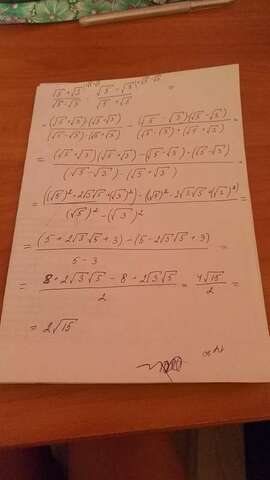 (√5 + √3)/(√5 - √3) - (√5 - √3)/(√5 + √3) =
= ((√5 + √3)·(√5 + √3))/((√5 - √3)·(√5 + √3)) - ((√5 - √3)(√5 - √3))/((√5 - √3)·(√5 + √3)) =
= ((√5 + √3)(√5 + √3) - (√5 - √3)·(√5 - √3))/((√5 - √3) - (√5 + √3)) =
= (((√5)² + 2√3√5 + (√3)²) - ((√5)² - 2√3√5 + (√3)²))/((√5)² - (√3)²) =
= ((5 + 2√3√5 + 3) - (5 - 2√3√5 + 3))/(5 - 3) =
= (8 + 2√3√5 - 8 + 2√3√5)/2 = 4√15/2 =
= 2√15